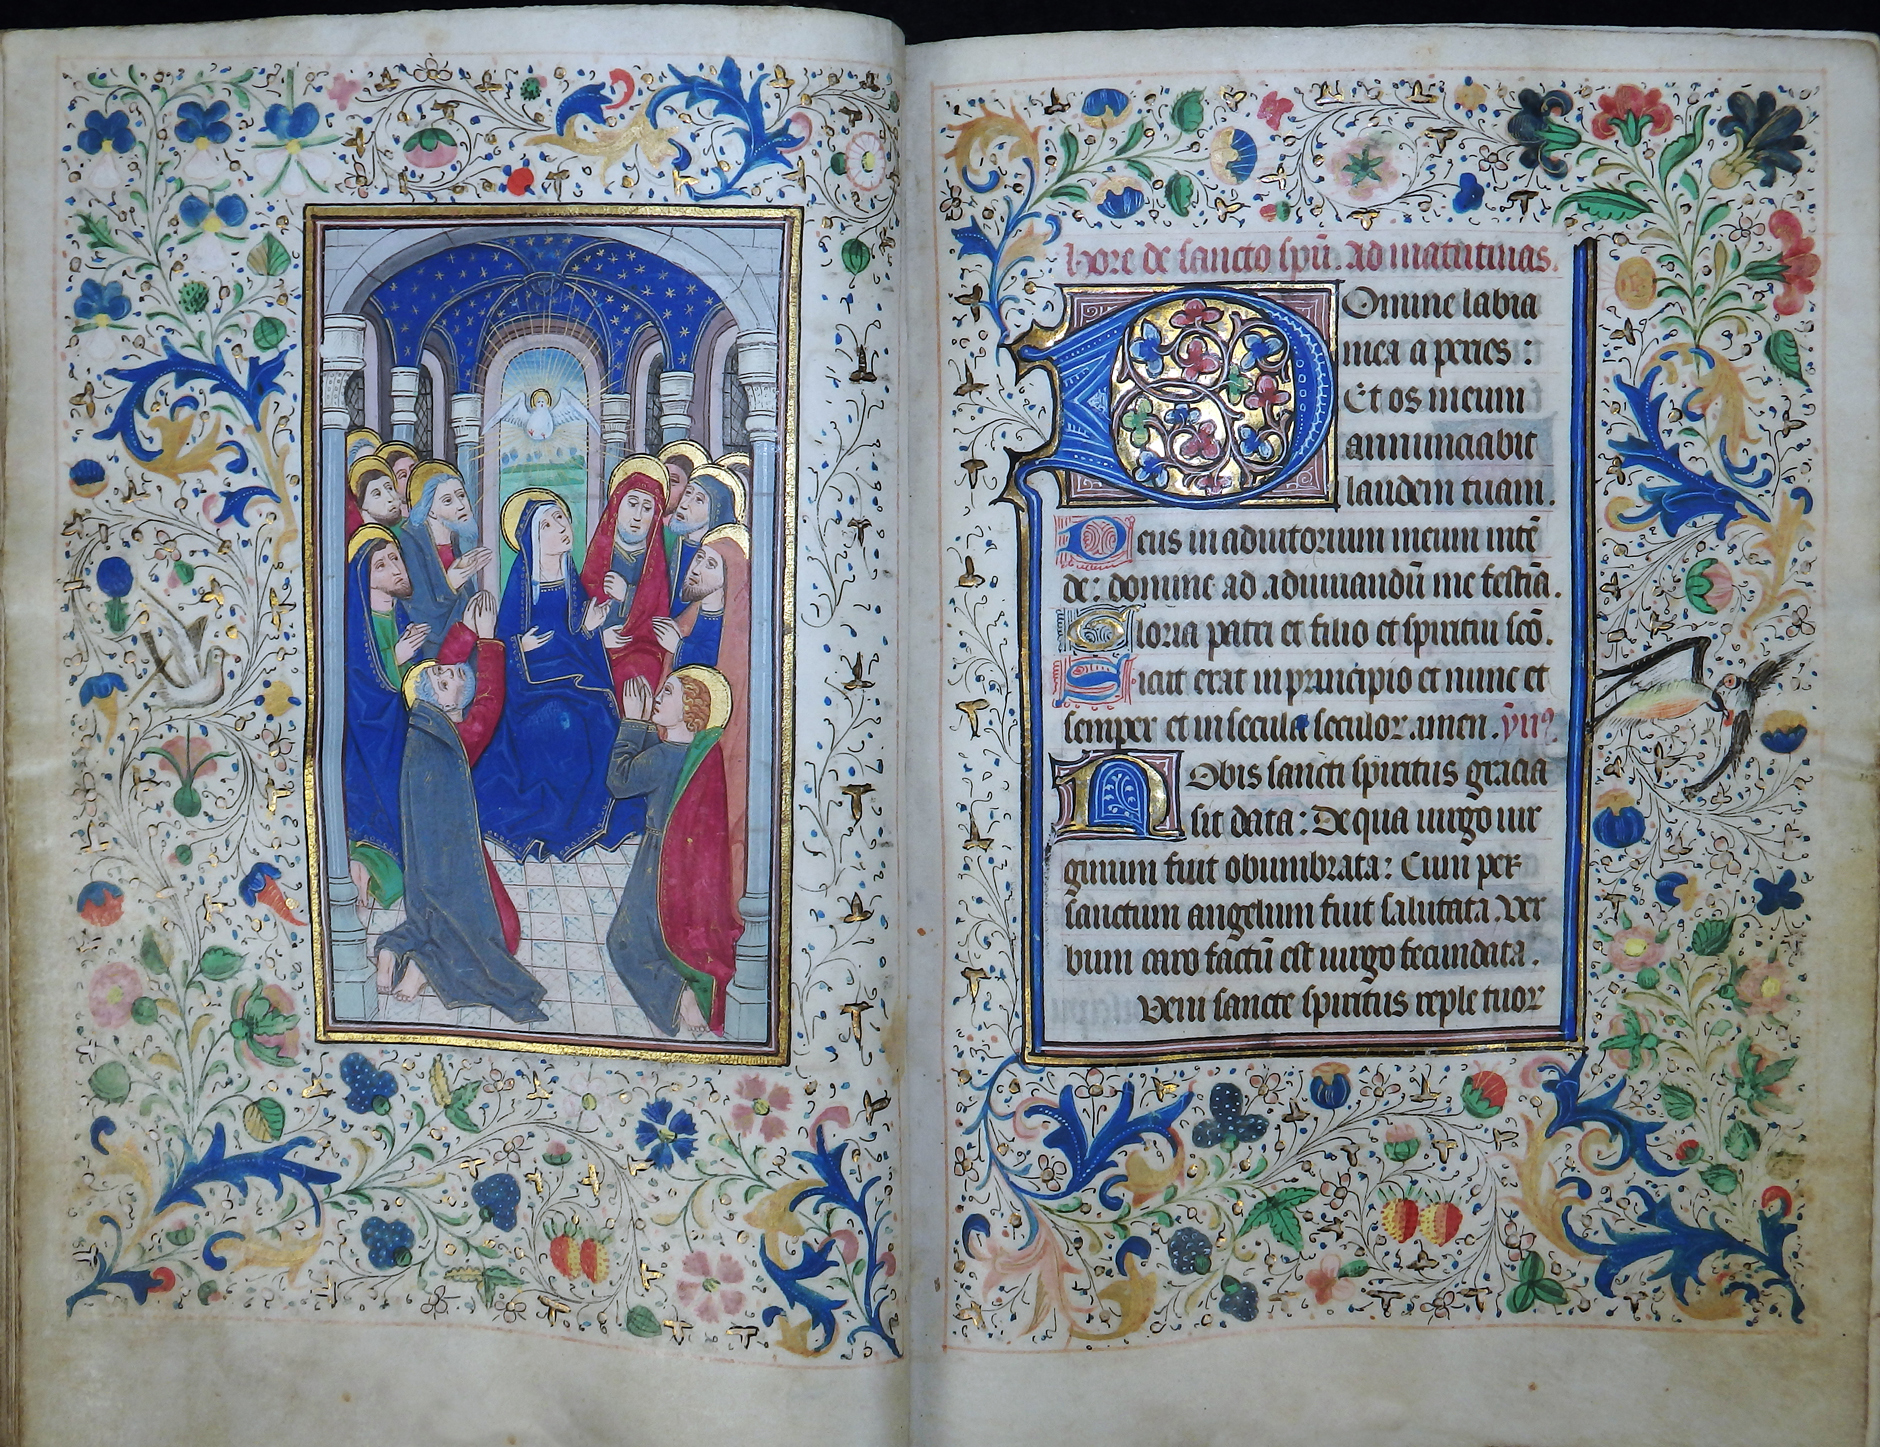 Hore de sancto spū. Ad matutinas.
Domine labia
mea aperies :
Et os meum
annunciabit
laudem tuam.
Deus in adiutorium meum intē
de: domine ad adiuuandū me festīa.
Gloria patri et filio et spiritui scō.
Sicut erat in principio et nunc et
semper et in secula seculoꝝ amen. ym̄ꝰ
Nobis sancti spiritus gracia
sit data: De qua uirgo uir
ginum fuit obumbrata: Cum per
sanctum angelum fuit salutata. Ver
bum caro factū est uirgo fecundata.
Veni sancte spiritus reple tuoꝝ